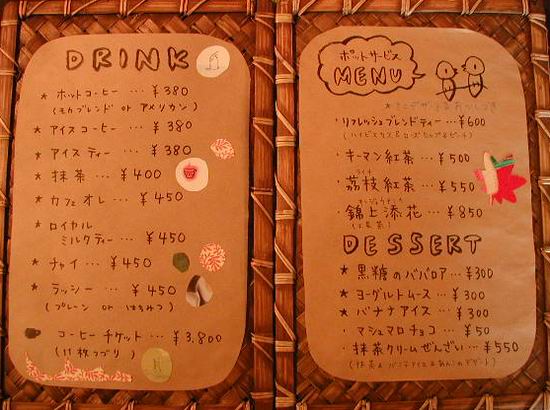 DRINK
★ ホットコーヒー … ¥380
(モカブレンド or アメリカン)
★ アイスコーヒー … ¥380
★ アイスティー … ¥380
★ 抹茶 … ¥400
★ カフェオレ … ¥450
★ ロイヤル
ミルクティー … ¥450
★ チャイ … ¥450
★ ラッシー … ¥450
(プレーン or はちみつ)
コーヒーチケット … ¥3,800
(11枚つづり)
ポットサービス
MENU
・リフレッシュブレンドティー … ¥600
・キーマン紅茶 … ¥500
ライチ
・荔枝紅茶 … ¥550
錦上添花 … ¥850
DESSERT
★ 黒糖のババロア … ¥300
★ ヨーグルトムース … ¥300
★ バナナアイス … ¥300
・マシュマロチョコ … ¥50
・抹茶クリームぜんざい … ¥550